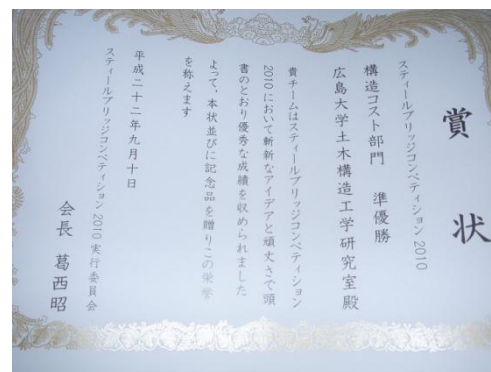 賞状
スティールブリッジコンペティション 2010
構造コスト部門 準優勝
広島大学土木構造工学研究室殿
貴チームはスティールブリッジコンペティション
2010において斬新なアイデアと頑丈さで頭
書のとおり優秀な成績を収められました
よって、本状並びに記念品を贈りこの栄誉
を称えます
平成二十二年九月十日
スティールブリッジコンペティション 2010 実行委員会
会長 葛西昭